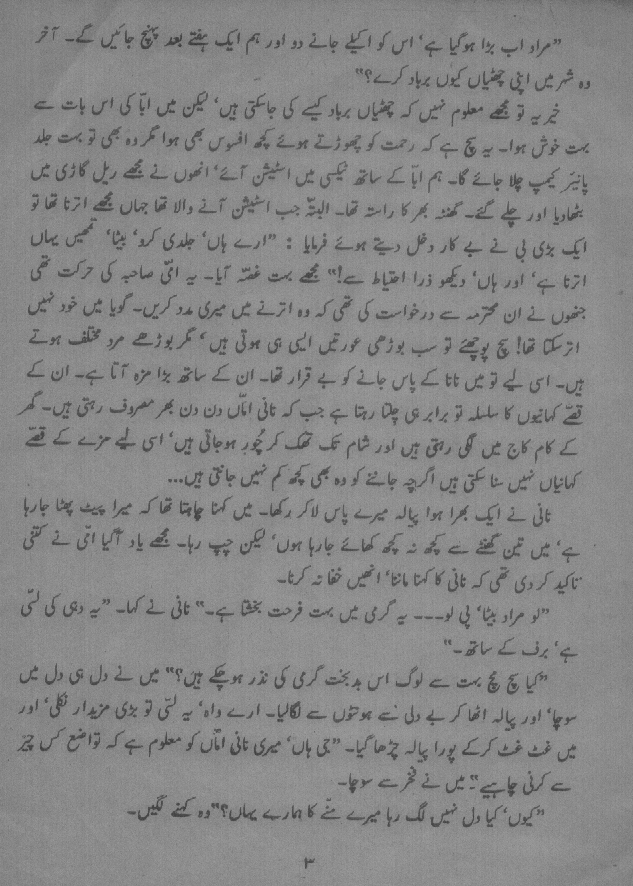 ”مراد اب بڑا ہوگیا ہے‘ اس کو اکیلے جانے دو اور ہم ایک ہفتے بعد پہنچ جائیں گے۔ آخر
وہ شہر میں اپنی چھٹیاں کیوں برباد کرے؟“
خیر یہ تو مجھے معلوم نہیں کہ چھٹیاں برباد کیسے کی جاسکتی ہیں‘ لیکن میں ابّا کی اس بات سے
بہت خوش ہوا۔ یہ سچ ہے کہ رحمت کو چھوڑتے ہوئے کچھ افسوس بھی ہوا مگر وہ بھی تو بہت جلد
پانیر کیمپ چلا جائے گا۔ ہم ابّا کے ساتھ ٹیکسی میں اسٹیشن آئے‘ انھوں نے مجھے ریل گاڑی میں
بٹھادیا اور چلے گئے۔ گھنٹہ بھر کا راستہ تھا۔ البتہّ جب اسٹیشن آنے والا تھا جہاں مجھے اترنا تھا تو
ایک بڑی بی نے بے کار دخل دیتے ہوئے فرمایا : ”ارے ہاں‘ جلدی کرو‘ بیٹا‘ تمھیں یہاں
اترنا ہے‘ اور ہاں‘ دیکھو ذرا احتیاط سے!“ مجھے بہت غصّہ آیا۔ یہ امّی صاحبہ کی حرکت تھی
جنھوں نے ان محترمہ سے درخواست کی تھی کہ وہ اترنے میں میری مدد کریں۔ گویا میں خود نہیں
اتر سکتا تھا! سچ پوچھئے تو سب بوڑھی عورتیں ایسی ہی ہوتی ہیں‘ مگر بوڑھے مرد مختلف ہوتے
ہیں۔ اسی لیے تو میں نانا کے پاس جانے کو بے قرار تھا۔ ان کے ساتھ بڑا مزہ آتا ہے۔ ان کے
قصّے کہانیوں کا سلسلہ تو برابر ہی چلتا رہتا ہے جب کہ نانی امّاں دن دن بھر مصروف رہتی ہیں۔ گھر
کے کام کاج میں لگی رہتی ہیں اور شام تک تھک کر چُور ہوجاتی ہیں‘ اسی لیے مزے کے قصّے
کہانیاں نہیں سنا سکتی ہیں اگرچہ جاننے کو وہ بھی کچھ کم نہیں جانتی ہیں...
نانی نے ایک بھرا ہوا پیالہ میرے پاس لاکر رکھا۔ میں کہنا چاہتا تھا کہ میرا پیٹ پھٹا جارہا
ہے‘ میں تین گھنٹے سے کچھ نہ کچھ کھائے جارہا ہوں‘ لیکن چپ رہا۔ مجھے یاد آگیا امّی نے کتنی
تاکید کردی تھی کہ نانی کا کہنا ماننا‘ انھیں خفا نہ کرنا۔
”لو مراد بیٹا‘ پی لو۔۔۔ یہ گرمی میں بہت فرحت بخشتا ہے۔“ نانی نے کہا۔ ”یہ دہی کی لسّی
ہے‘ برف کے ساتھ۔“
”کیا سچ مچ بہت سے لوگ اس بدبخت گرمی کی نذر ہوچکے ہیں؟“ میں نے دل ہی دل میں
سوچا‘ اور پیالہ اٹھا کر بے دلی سے ہونٹوں سے لگالیا۔ ارے واہ‘ یہ لسّی تو بڑی مزیدار نکلی‘ اور
میں غٹ غٹ کرکے پورا پیالہ چڑھا گیا۔ ”جی ہاں‘ میری نانی امّاں کو معلوم ہے کہ تواضع کس چیز
سے کرنی چاہیے“۔ میں نے فخر سے سوچا۔
”کیوں‘ کیا دل نہیں لگ رہا میرے منّے کا ہمارے یہاں؟“ وہ کہنے لگیں۔
۳